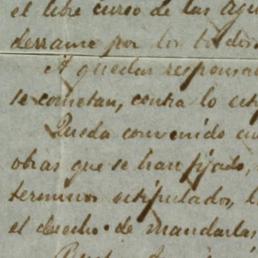 el libre curso de las agu
derrame por los todos
A quedar responsa
se cometan, contra lo esti
Queda convenido en
obras que se han fijado,
terminos estipulados, l
el derecho de mandarlas